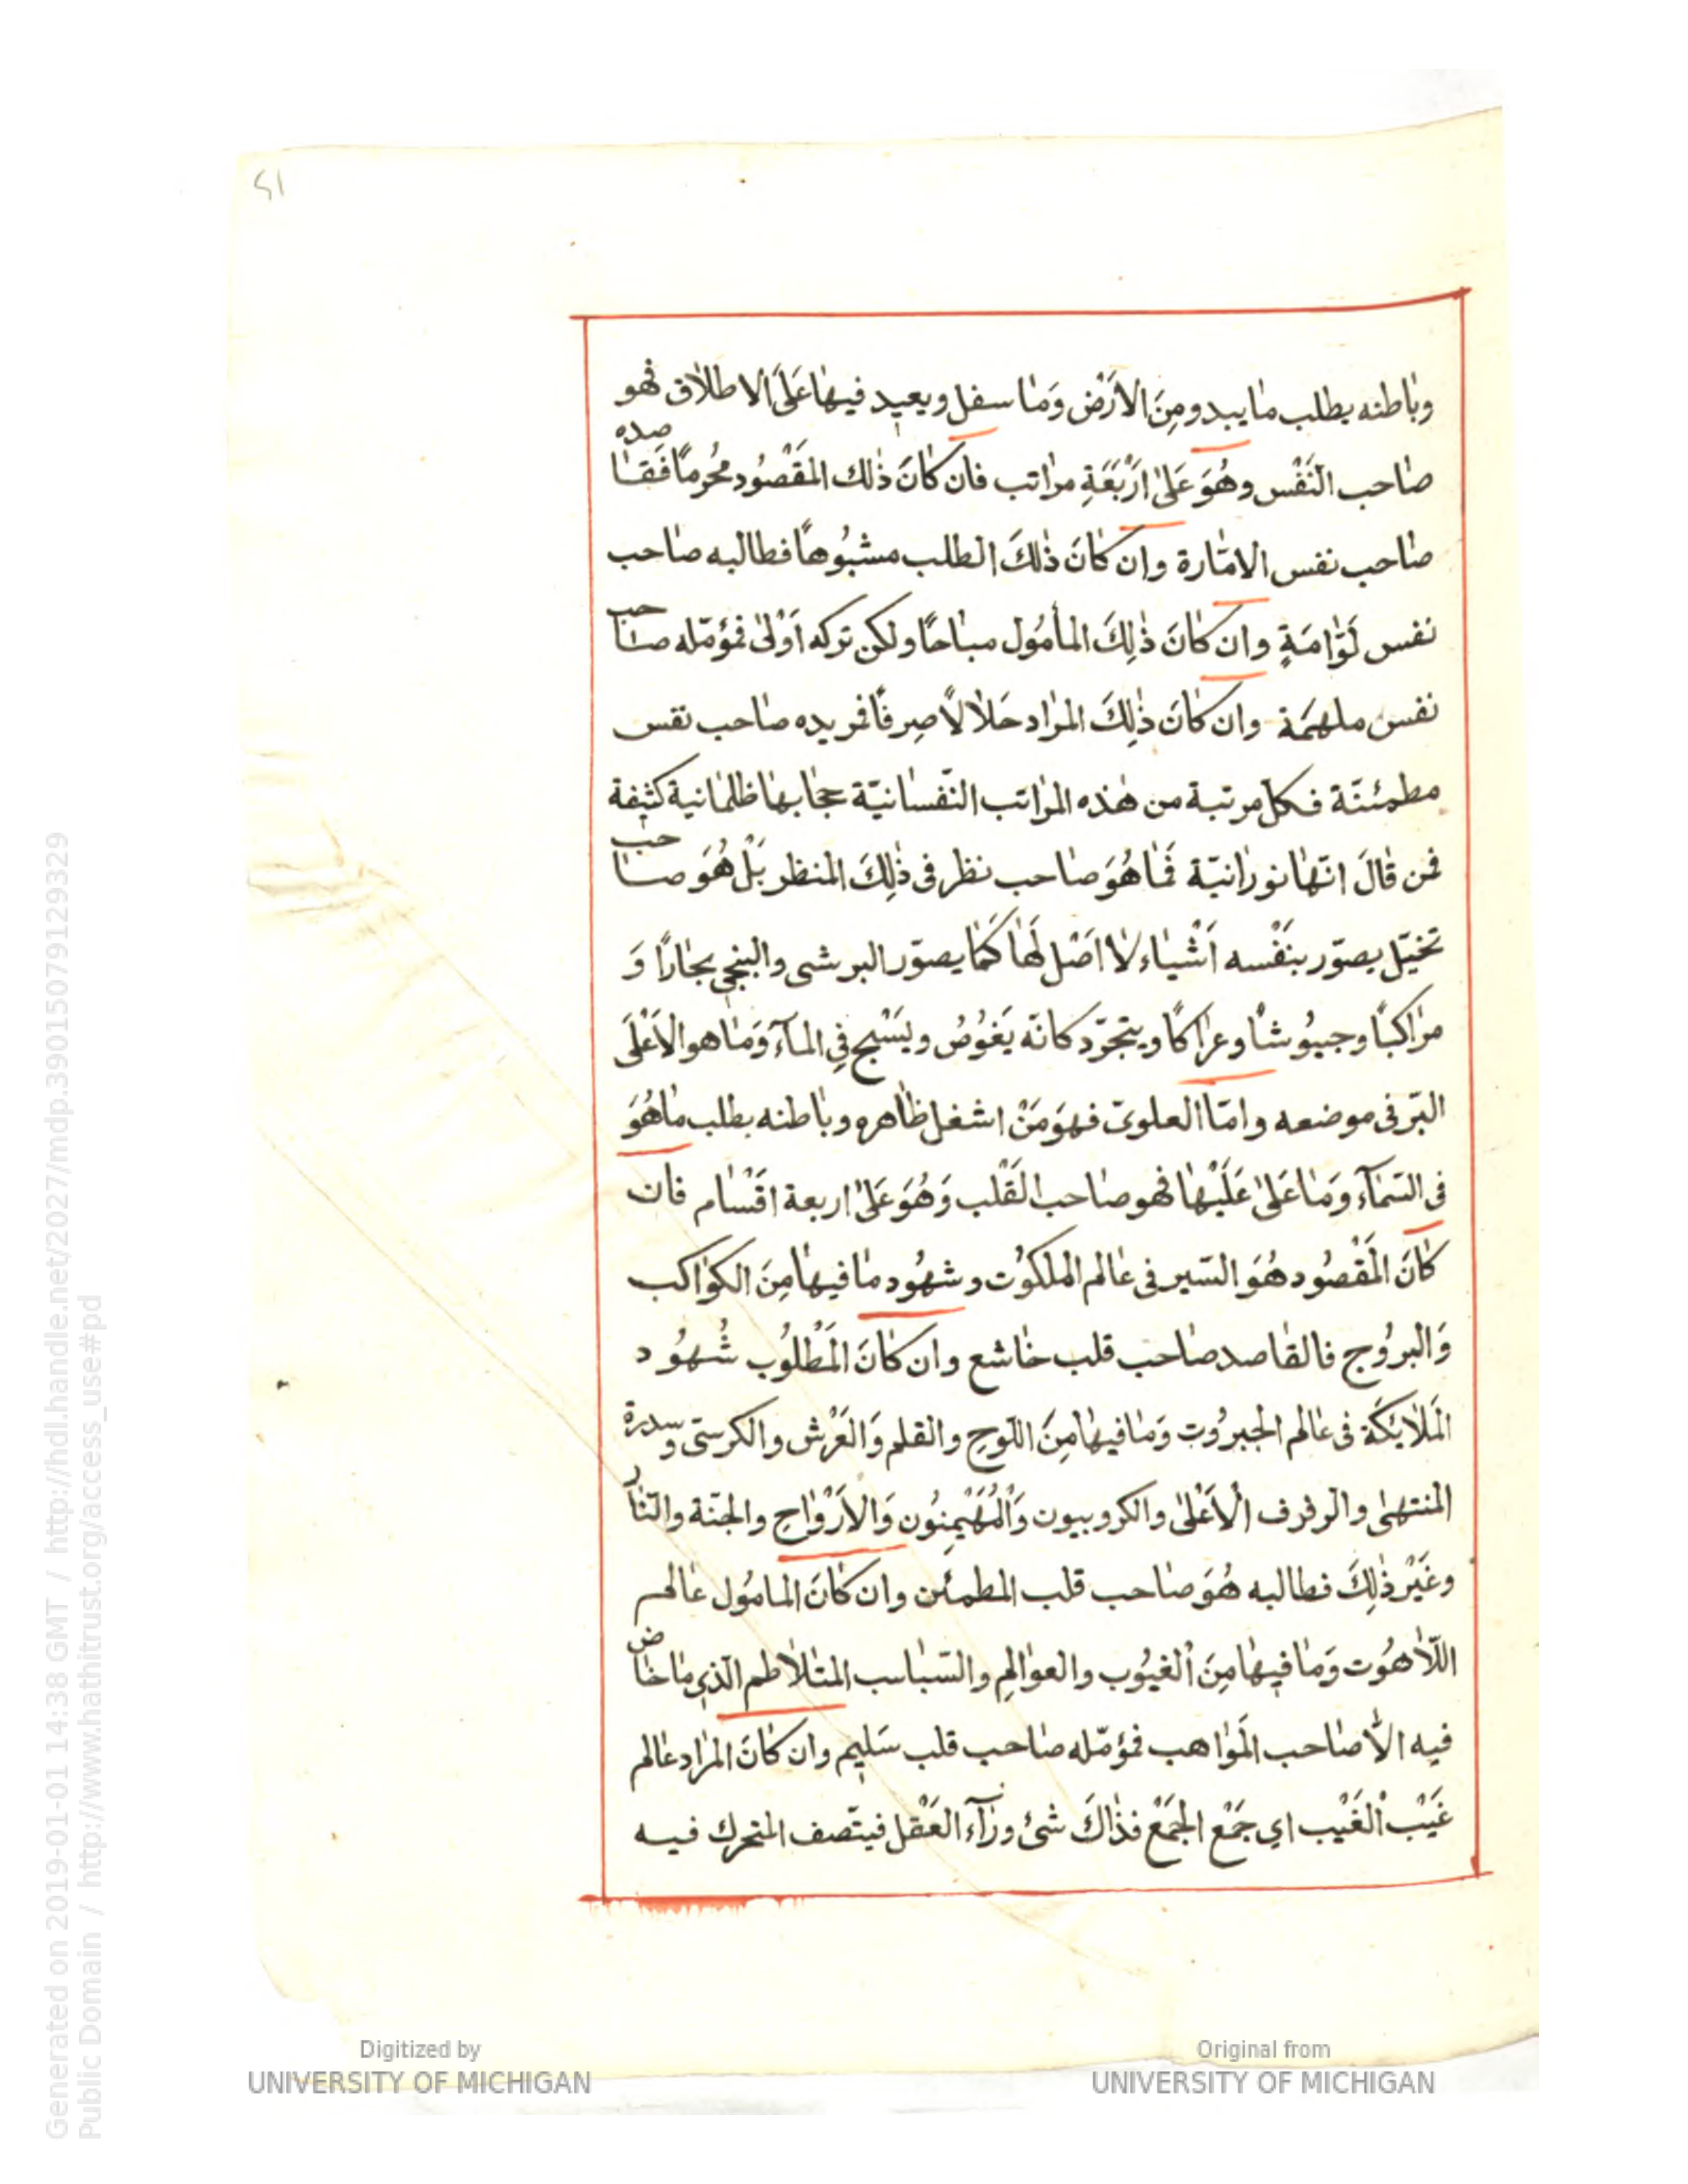 51
وبٰاطنه يطلب مٰا يبدو مِنَ الاَرْض وَمٰا سفل ويعيد فيهٰا عَلَى الاطلاٰق فهو
صٰاحب النَفْس وهُوَ عَلىٰ اَرْبَعَةِ مرٰاتب فان كٰانَ ذٰلك المَقْصُود مُحرمًا فَقٰاصده
صٰاحب نفس الامّٰارة وان كٰانَ ذٰلكَ الطلب مشبُوهًا فطالبه صٰاحب
نفس لَوّٰامَةٍ وان كٰانَ ذٰلِكَ المأمُول مبٰاحًا ولكن تركه اَوْلىٰ فمؤمّله صٰاحب
نفس ملهمَة وان كٰانَ ذٰلِكَ المرٰاد حَلاٰلاً صِرفًا فمريده صٰاحب نفس
مطمئنّة فكلّ مرتبة من هٰذه المرٰاتب النّفسانيّة حجٰابهٰا ظلمٰانية كثيفة
فمن قٰالَ انّهٰا نورٰانيّة فَمٰا هُوَ صٰاحب نظر فى ذٰلِكَ المنظر بَلْ هُوَ صٰاحب
تخيّل يصوّر بنَفْسه اَشْيٰاء لاٰ اَصْل لَهٰا كَمٰا يصوّر البرشى والبنجى بحٰارًا وَ
مرٰاكبًا وجيُوشًا وعرٰاكًا ويتجرّد كانّه يَغُوصُ ويَسْبح فِي المآء وَمٰا هو الاَعْلَى
البَرّ فى موضعه وامّا العلوىّ فهوَ مَنْ اشغل ظٰاهره وبٰاطنه بطلب مٰا هُوَ
فى السّمآء وَمٰا عَلىٰ عَلَيْهٰا فهو صٰاحب القَلْب وَهُوَ عَلىٰ اربعة اقسٰام فان
كٰانَ المَقْصُود هُوَ السّير فى عٰالم الملكُوت وشهُود مٰا فيهٰا مِنَ الكوٰاكب
وَالبرُوج فالقٰاصد صٰاحب قلب خٰاشع وان كٰانَ المَطْلُوب شُهُود
المَلاٰئكَة فى عٰالم الجبرُوت وَمٰا فيهٰا مِنَ اللّوحِ والقلم وَالعَرْش والكرسّى وسدرة
المنتهىٰ والرفرف الاَعْلىٰ والكروبيون وَالْمُهَيْمِنُون وَالاَرْوٰاحِ والجنّة والنّٰار
وغَيْر ذٰلِكَ فطالبه هُوَ صٰاحب قلب المطمئن وان كٰانَ المامُول عٰالم
اللّاٰهُوت وَمٰا فيهٰا مِنَ الْغيُوب والعوٰالمِ والسّبٰاسب المتلاٰطم الّذي مٰا خٰاض
فيه الاّٰ صٰاحب المَوٰاهب فمؤمّله صٰاحب قلب سَليم وان كٰانَ المرٰاد عٰالم
غَيْب الْغَيْب اي جَمْع الجَمْع فذٰاكَ شئ ورٰآء العَقْل فيتّصف المتحرك فيه
Digitized by
UNIVERSITY OF MICHIGAN
Original from
UNIVERSITY OF MICHIGAN
Generated on 2019-01-01 14:38 GMT / http://hdl.handle.net/2027/mdp.39015079129329
Public Domain / http://www.hathitrust.org/access_use#pd